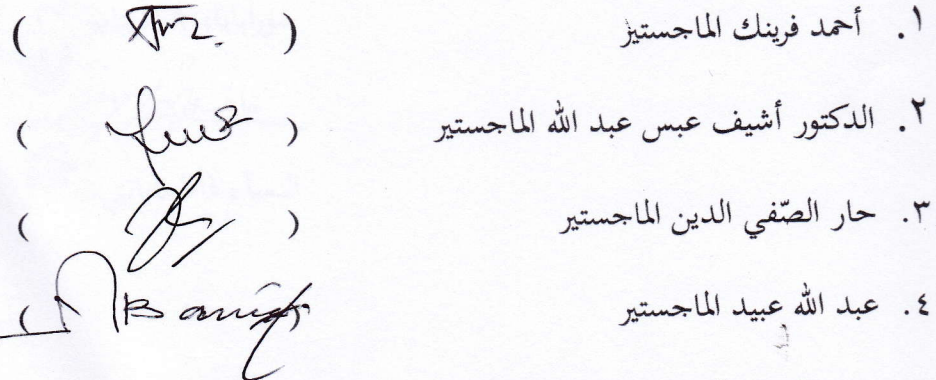 ١. أحمد فرينك الماجستير ( )
٢. الدكتور أشيف عبس عبد الله الماجستير ( )
٣. حار الصّفي الدين الماجستير ( )
٤. عبد الله عبيد الماجستير ( )